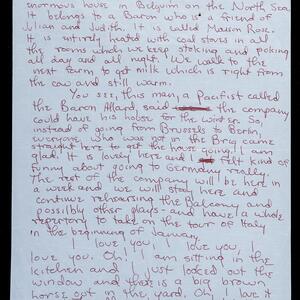 enormous house in Belgium on the North Sea.
It belongs to a Baron who is a friend of
Julian and Judith. It is called Maison Rose.
It is entirely heated by coal stoves in all
the rooms which we keep stoking and poking
all day and all night. We walk to the
next farm to get milk which is right from
the cow and still warm.
You see, this man, a Pacifist called
the Baron Allard, said the company
could have his house for the winter. So,
instead of going from Brussels to Berlin,
everyone who was not in the Brig came
straight here to get the house going. I am
glad. It is lovely here and I felt kind of
funny about going to Germany really.
The rest of the company will be here in
a week and we will stay here and
continue rehearsing the Balcony and
possibly other plays - and have a whole
repertory to take on the tour of Italy
in the beginning of January.
I love you, I love you, I
love you. Oh! I am sitting in the
kitchen and I just looked out the
window and there is a big brown
horse out in the yard. Oh, I love it